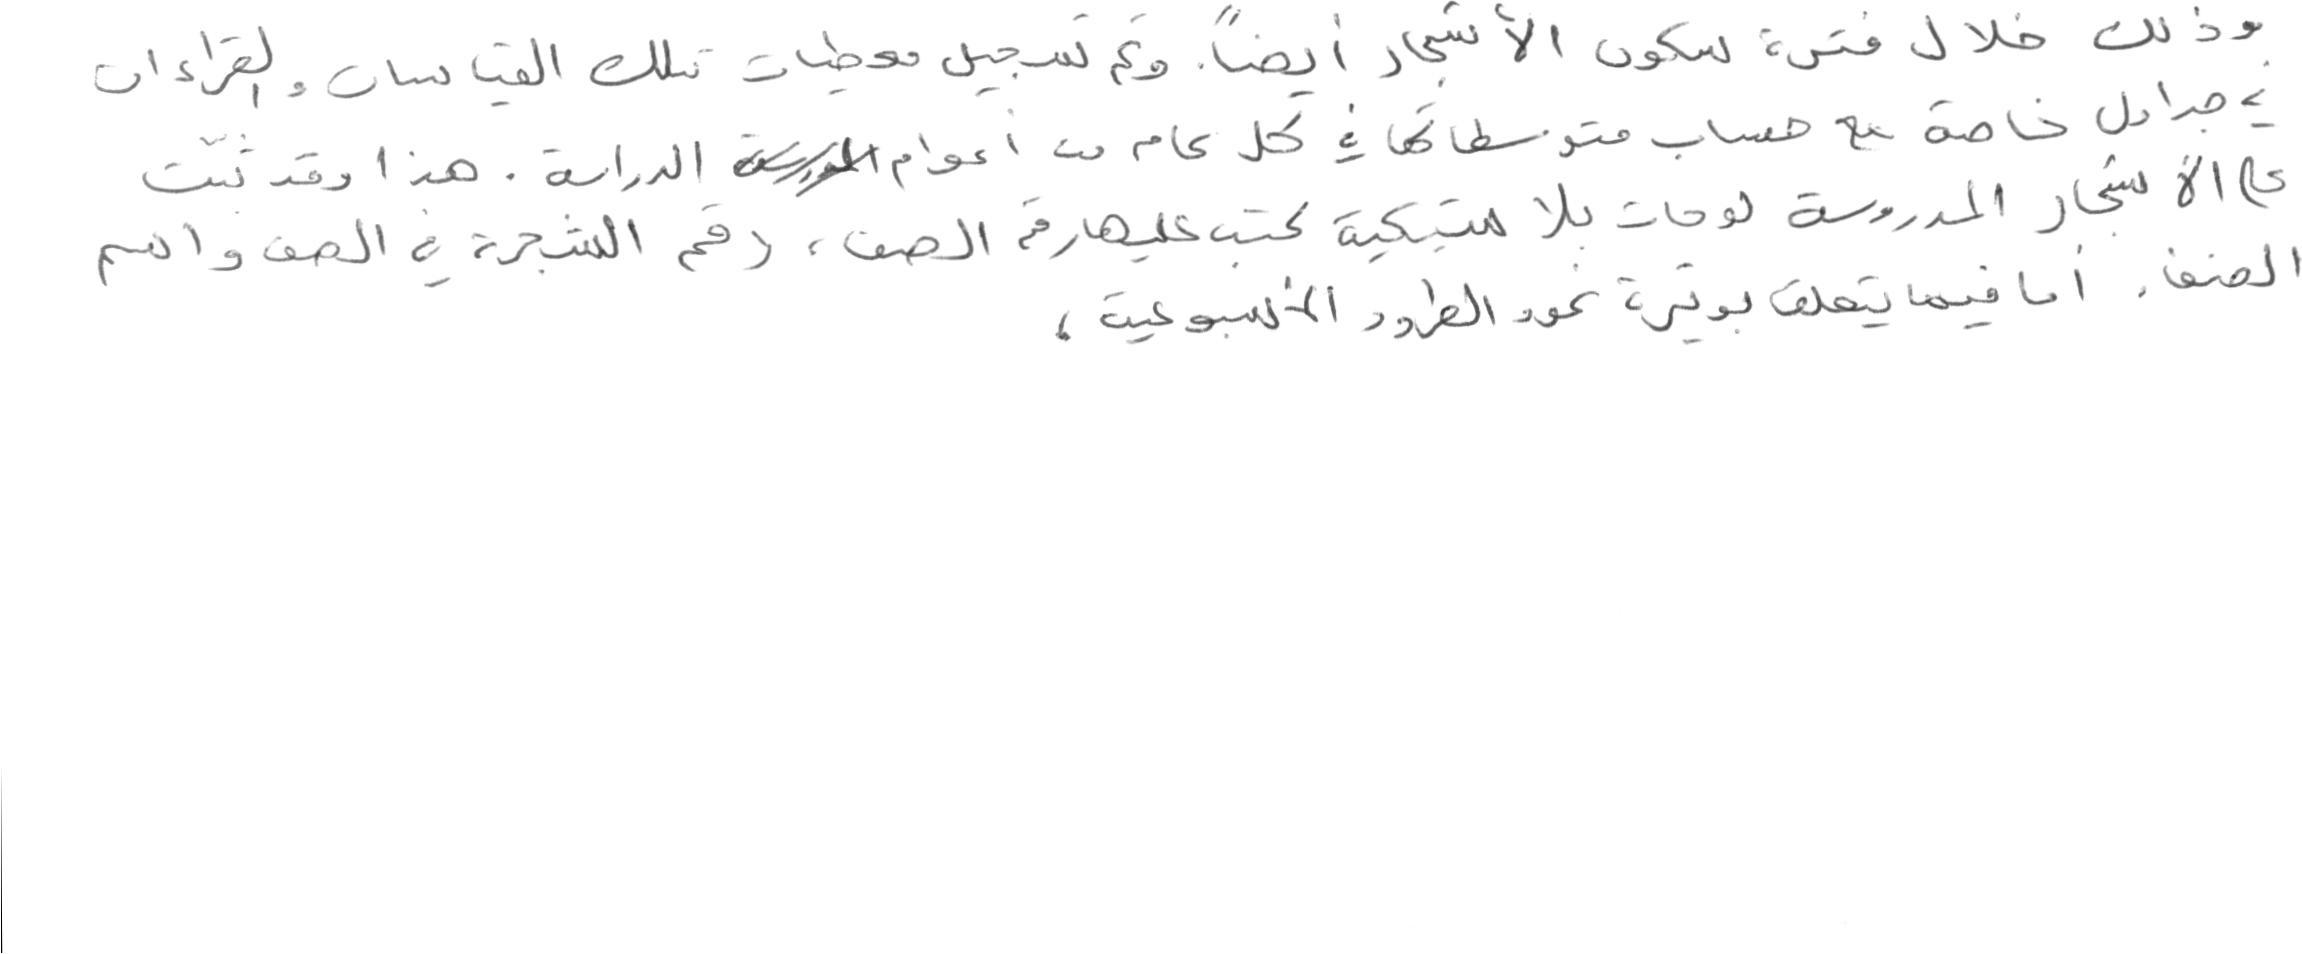 وذلك خلال فترة سكون الأشجار أيضاً. وتم تسجيل معطيات تلك القياسات والقراءات
في جداول خاصة مع حساب متوسطاتها في كل عام من أعوام الدراسة. هذا وقد ثبّت
على الأشجار المدروسة لوحات بلاستيكية كتب عليها رقم الصف، رقم الشجرة في الصف واسم
الصنف. أما فيما يتعلق بوتيرة نمو الطرود الأسبوعية،